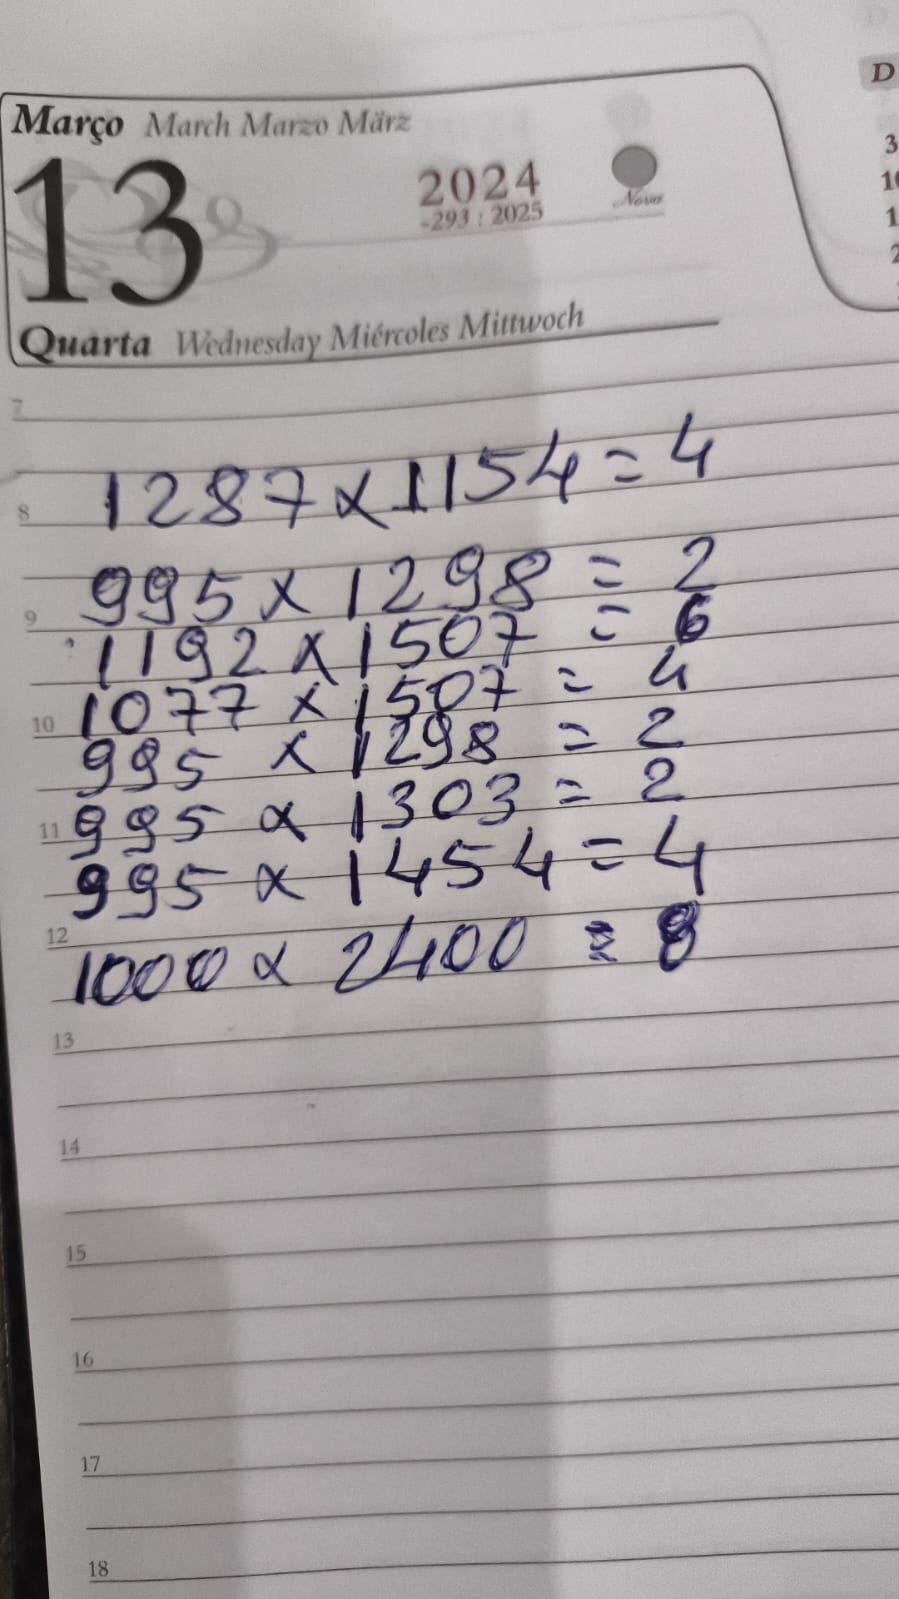 Março March Marzo März
13
2024
-293 : 2025
Nova
Quarta Wednesday Miércoles Mittwoch
D
3
1
7
1287 x 1154 = 4
8
995 x 1298 = 2
9
1192 x 1507 = 6
1077 x 1507 = 4
10
995 x 1298 = 2
995 x 1303 = 2
11
995 x 1454 = 4
12
1000 x 2400 = 8
13
14
15
16
17
18